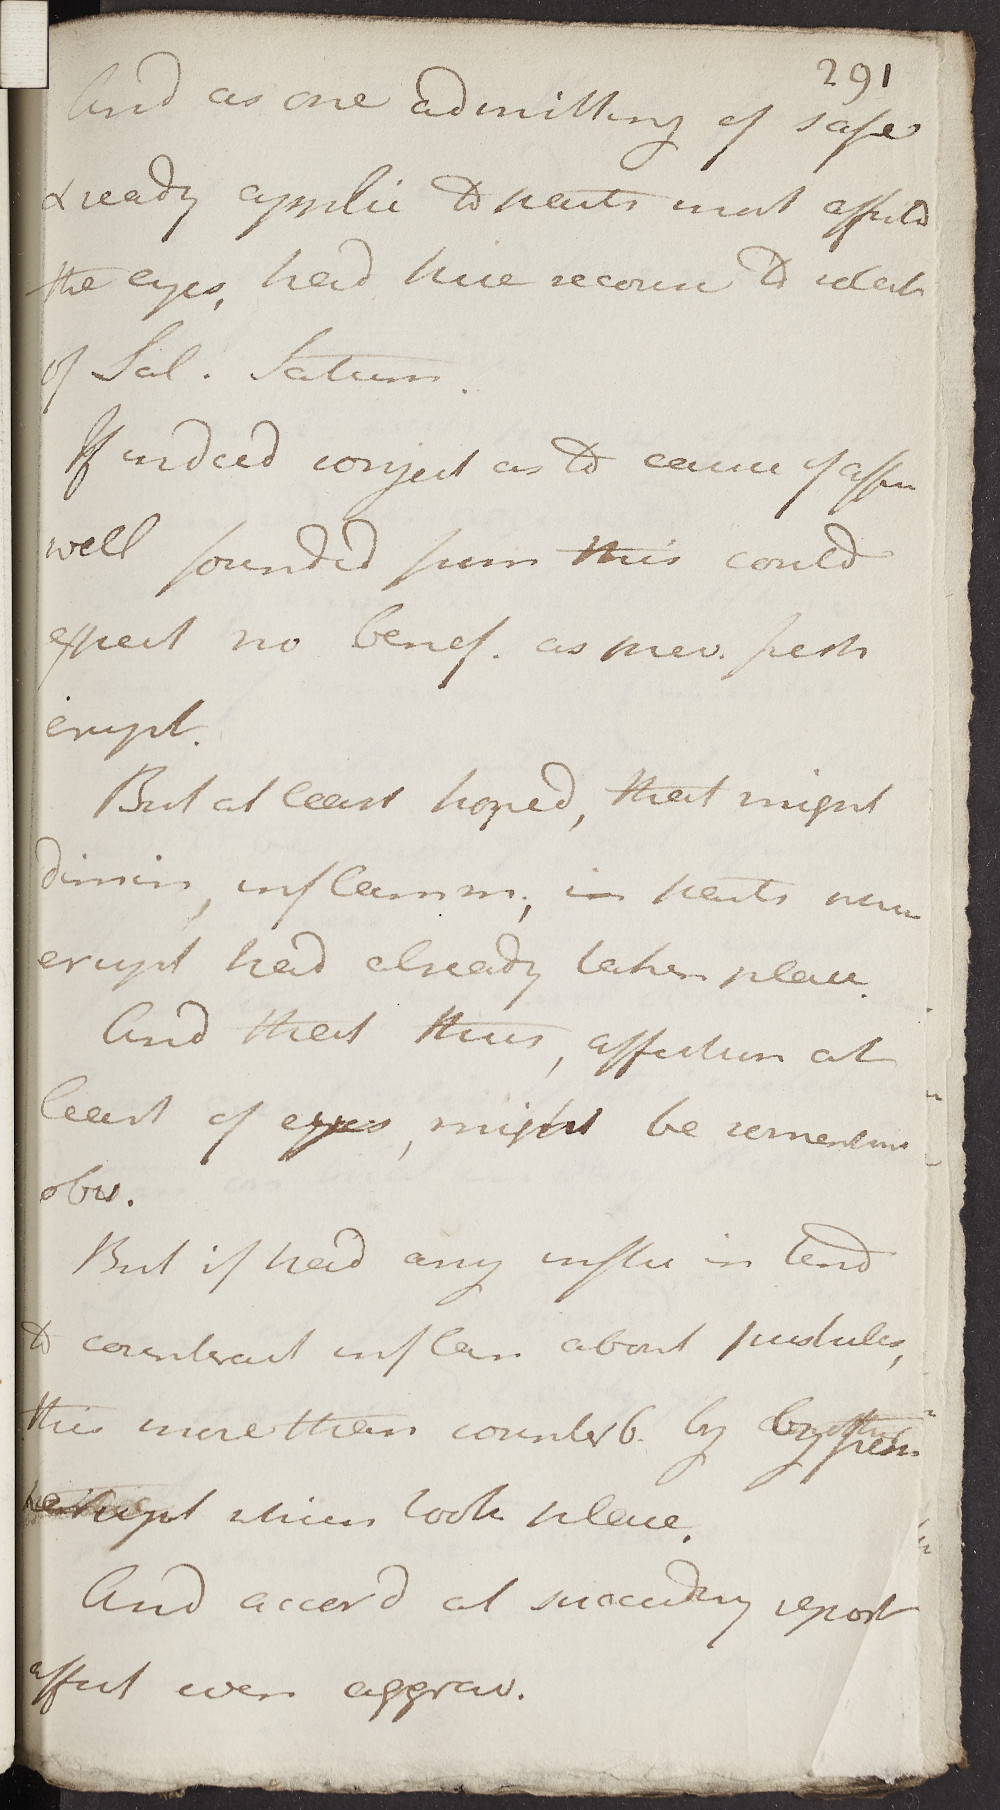 291
And as one admitting of safe
& ready applic to parts most affectd
the eyes, had here recourse to
of Sal. Saturn.
If indeed conject as to cause of affn
well founded from this could
expect no benef. as prev. fresh
erupt.
But at least hoped, that might
dimin, inflamm, in parts when
erupt had already taken place.
And that thus, affection at
least of eyes, might be somewhat
obv.
But if had any influ in tend
to counteract inflam about pustules,
this more than counterb. by by fresh
erupt which took place.
And accord at succeeding report
affect even aggrav.